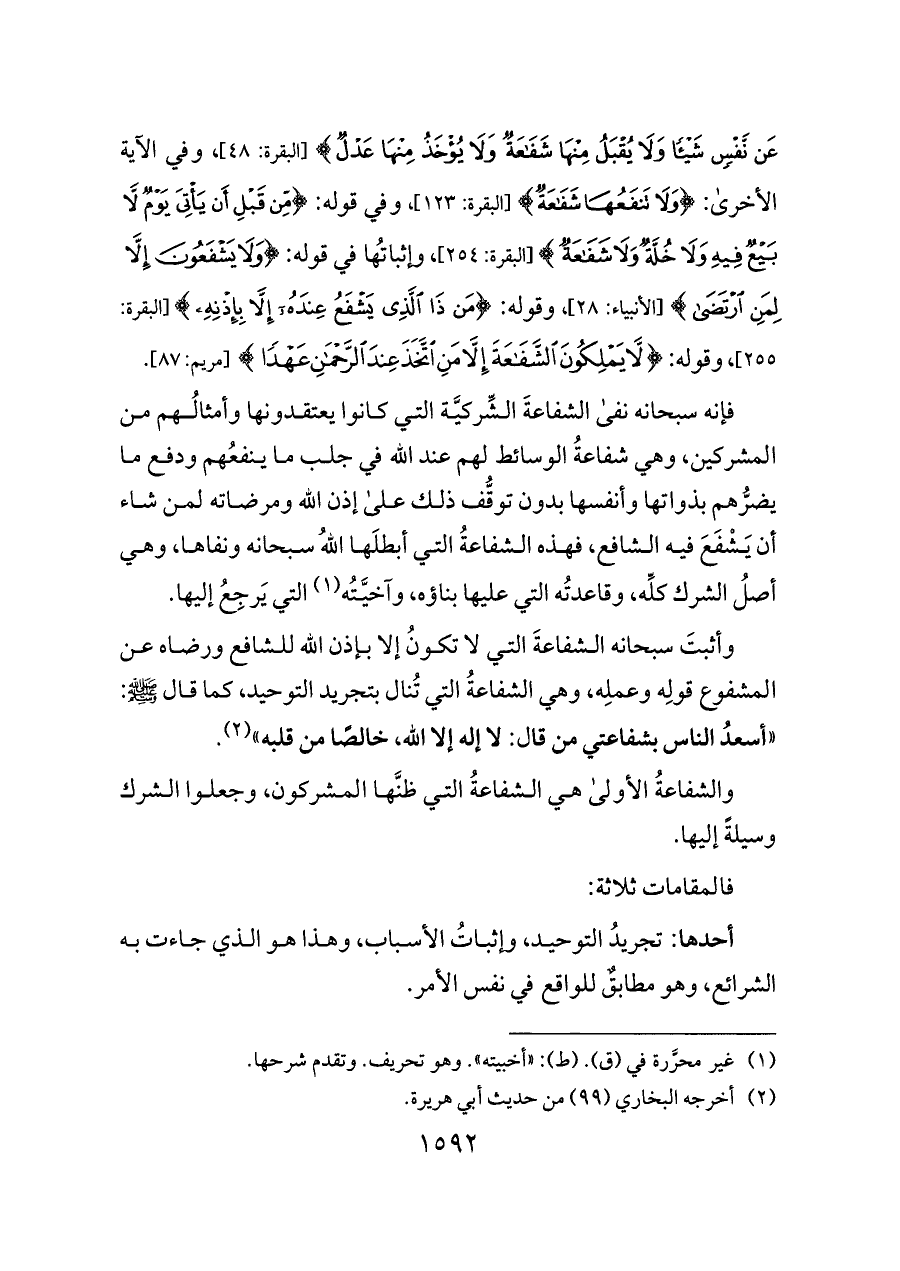 عَن نَّفْسٍ شَيْئًا وَلَا يُقْبَلُ مِنْهَا شَفَاعَةٌ وَلَا يُؤْخَذُ مِنْهَا عَدْلٌ﴾ [البقرة: ٤٨]، وفي الآية
الأخرىٰ: ﴿وَلَا تَنفَعُهَا شَفَاعَةٌ﴾ [البقرة: ١٢٣]، وفي قوله: ﴿مِّن قَبْلِ أَن يَأْتِيَ يَوْمٌ لَّا
بَيْعٌ فِيهِ وَلَا خُلَّةٌ وَلَا شَفَاعَةٌ﴾ [البقرة: ٢٥٤]، وإثباتُها في قوله: ﴿وَلَا يَشْفَعُونَ إِلَّا
لِمَنِ ٱرْتَضَىٰ﴾ [الأنبياء: ٢٨]، وقوله: ﴿مَن ذَا ٱلَّذِى يَشْفَعُ عِندَهُۥٓ إِلَّا بِإِذْنِهِۦ﴾ [البقرة:
٢٥٥]، وقوله: ﴿لَّا يَمْلِكُونَ ٱلشَّفَٰعَةَ إِلَّا مَنِ ٱتَّخَذَ عِندَ ٱلرَّحْمَٰنِ عَهْدًا﴾ [مريم: ٨٧].
فإنه سبحانه نفىٰ الشفاعةَ الشِّركيَّة التي كانوا يعتقدونها وأمثالُهم من
المشركين، وهي شفاعةُ الوسائط لهم عند الله في جلب ما ينفعُهم ودفع ما
يضرُّهم بذواتها وأنفسها بدون توقُّف ذلك علىٰ إذن الله ومرضاته لمن شاء
أن يَشْفَعَ فيه الشافع، فهذه الشفاعةُ التي أبطلَها اللهُ سبحانه ونفاها، وهي
أصلُ الشرك كلِّه، وقاعدتُه التي عليها بناؤه، وآخيَّتُه(١) التي يَرجِعُ إليها.
وأثبتَ سبحانه الشفاعةَ التي لا تكونُ إلا بإذن الله للشافع ورضاه عن
المشفوع قولِه وعملِه، وهي الشفاعةُ التي تُنال بتجريد التوحيد، كما قال ﷺ:
«أسعدُ الناس بشفاعتي من قال: لا إله إلا الله، خالصًا من قلبه»(٢).
والشفاعةُ الأولىٰ هي الشفاعةُ التي ظنَّها المشركون، وجعلوا الشرك
وسيلةً إليها.
فالمقامات ثلاثة:
أحدها: تجريدُ التوحيد، وإثباتُ الأسباب، وهذا هو الذي جاءت به
الشرائع، وهو مطابقٌ للواقع في نفس الأمر.
(١) غير محرَّرة في (ق). (ط): «أخبيته». وهو تحريف. وتقدم شرحها.
(٢) أخرجه البخاري (٩٩) من حديث أبي هريرة.
١٥٩٢